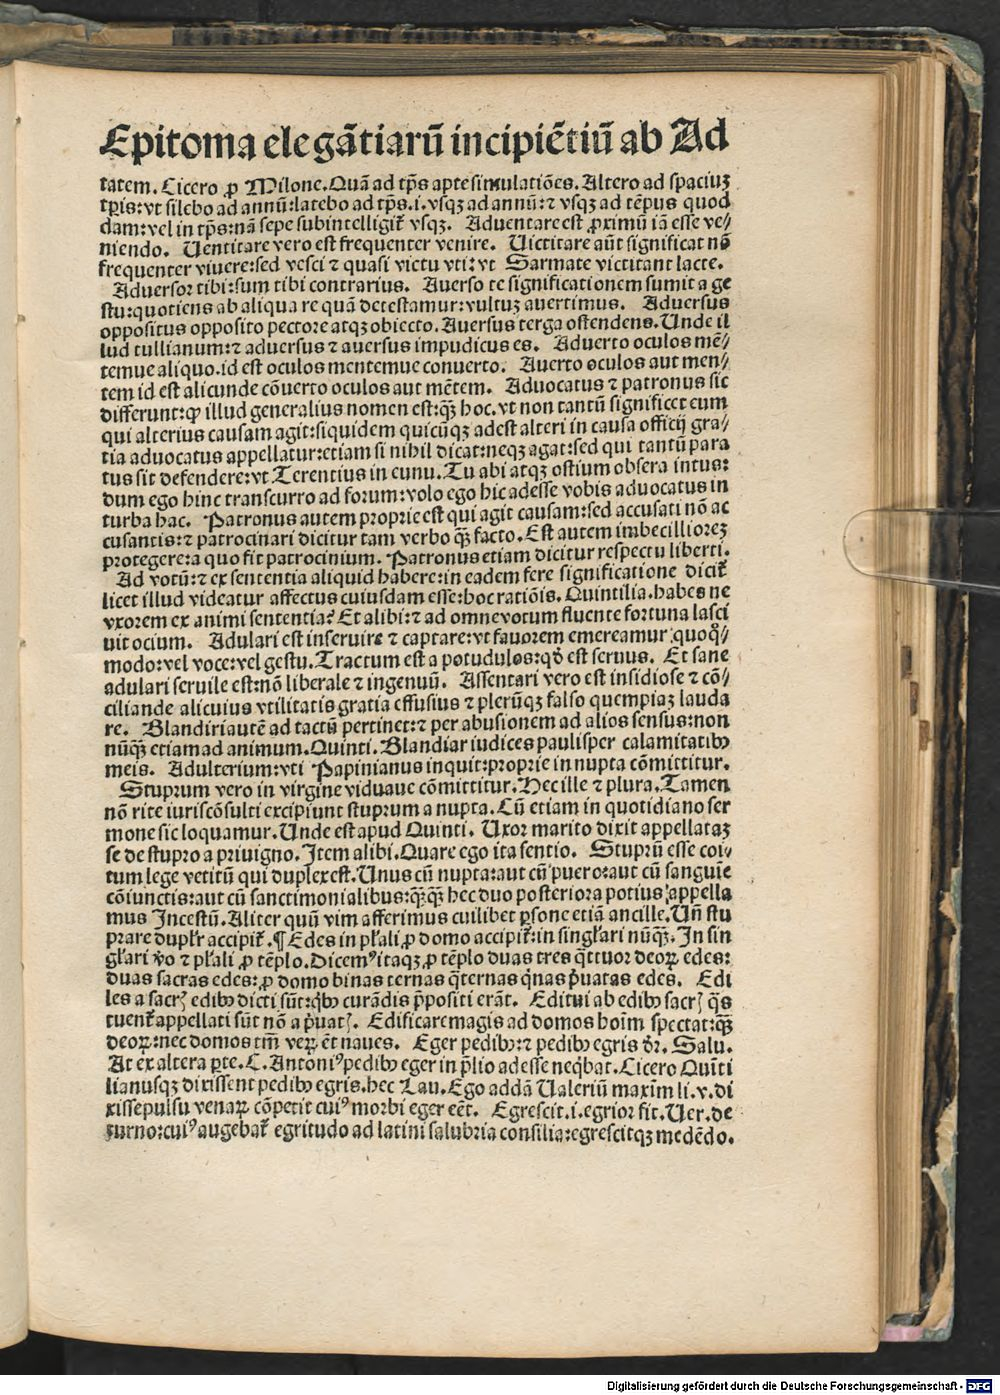 Epitoma elegãtiarũ incipiẽtiũ ab Ad
tatem. Cicero ꝓ Milone. Quã ad tp̃s apte simulatiões. Altero ad spaciuꝫ
tp̃is: vt silebo ad annũ: latebo ad tp̃s .i. vsqꝫ ad annũ: ⁊ vsqꝫ ad tẽpus quod
dam: vel in tp̃s: nã sepe subintelligit᷑ vsqꝫ. Aduentare est ꝓximũ iã esse ve⸗
niendo. Uentitare vero est frequenter venire. Uictitare aũt significat nõ
frequenter viuere: sed vesci ⁊ quasi victu vti: vt Sarmate victitant lacte.
Aduersor tibi: sum tibi contrarius. Auerso te significationem sumit a ge
stu: quotiens ab aliqua re quã detestamur: vultuꝫ auertimus. Aduersus
oppositus opposito pectore atqꝫ obiecto. Auersus terga ostendens. Unde il
lud tullianum: ⁊ aduersus ⁊ auersus impudicus es. Aduerto oculos mẽ⸗
temue aliquo. id est oculos mentemue conuerto. Auerto oculos aut men⸗
tem id est alicunde cõuerto oculos aut mẽtem. Aduocatus ⁊ patronus sic
differunt: ꝙ illud generalius nomen est: qꝫ̃ hoc. vt non tantũ significet eum
qui alterius causam agit: siquidem quicũqꝫ adest alteri in causa officij gra⸗
tia aduocatus appellatur: etiam si nihil dicat: neqꝫ agat: sed qui tantũ para
tus sit defendere: vt Terentius in eunu. Tu abi atqꝫ ostium obsera intus:
dum ego hinc transcurro ad forum: volo ego hic adesse vobis aduocatus in
turba hac. Patronus autem proprie est qui agit causam: sed accusati nõ ac
cusantis: ⁊ patrocinari dicitur tam verbo qꝫ̃ facto. Est autem imbecillioreꝫ
protegere: a quo fit patrocinium. Patronus etiam dicitur respectu liberti.
Ad votũ: ⁊ ex sententia aliquid habere: in eadem fere significatione dicit᷑
licet illud videatur affectus cuiusdam esse: hoc ratiõis. Quintilia. habes ne
vxorem ex animi sententia? Et alibi: ⁊ ad omne votum fluente fortuna lasci
uit ocium. Adulari est inseruire ⁊ captare: vt fauorem emereamur quoq̃⸗
modo: vel voce: vel gestu. Tractum est a potudulos: qđ est seruus. Et sane
adulari seruile est: nõ liberale ⁊ ingenuũ. Assentari vero est insidiose ⁊ cõ⸗
ciliande alicuius vtilitatis gratia effusius ⁊ plerũqꝫ falso quempiaꝫ lauda
re. Blandiri autẽ ad tactũ pertinet: ⁊ per abusionem ad alios sensus: non
nũqꝫ̃ etiam ad animum. Quinti. Blandiar iudices paulisper calamitatibꝰ
meis. Adulterium: vti Papinianus inquit: proprie in nupta cõmittitur.
Stuprum vero in virgine viduaue cõmittitur. Hec ille ⁊ plura. Tamen
nõ rite iuriscõsulti excipiunt stuprum a nupta. Cũ etiam in quotidiano ser
mone sic loquamur. Unde est apud Quinti. Uxor marito dixit appellataꝫ
se de stupro a priuigno. Item alibi. Quare ego ita sentio. Stuprũ esse coi⸗
tum lege vetitũ qui duplex est. Unus cũ nupta: aut cũ puero: aut cũ sanguĩe
cõiunctis: aut cũ sanctimonialibus: qꝫ̃qꝫ̃ hec duo posteriora potius appella
mus Incestũ. Aliter quũ vim afferimus cuilibet ꝑsone etiã ancille. Uñ stu
prare duplr̃ accipit᷑. ¶ Edes in pl̃ali ꝓ domo accipit᷑: in singl̃ari nũqꝫ̃. In sin
gl̃ari ṽo ⁊ pl̃ali ꝓ tẽplo. Dicemꝰ itaqꝫ ꝓ tẽplo duas tres q̃ttuor deoꝝ edes:
duas sacras edes: ꝓ domo binas ternas q̃ternas q̃nas p̃uatas edes. Edi
les a sacrꝭ edibꝰ dicti sũt: qͥbꝰ curãdis p̃positi erãt. Editui ab edibꝰ sacrꝭ q̃s
tuent᷑ appellati sũt nõ a p̃uatꝭ. Edificare magis ad domos hoĩm spectat: qꝫ̃
deoꝝ: nec domos tm̃ veꝝ ẽt naues. Eger pedibꝰ: ⁊ pedibꝰ egris dr̃. Salu.
At ex altera ꝑte. C. Antoniꝰ pedibꝰ eger in p̃lio adesse neq̃bat. Cicero Quĩti
lianusqꝫ dixissent pedibꝰ egris. hec Lau. Ego addã Ualeriũ maxĩm li. v. di
xisse pulsu venaꝝ cõperit cuiꝰ morbi eger eẽt. Egrescit .i. egrior fit. Uer. de
turno: cuiꝰ augebat᷑ egritudo ad latini salubria consilia: egrescitqꝫ medẽdo.
Digitalisierung gefördert durch die Deutsche Forschungsgemeinschaft - DFG